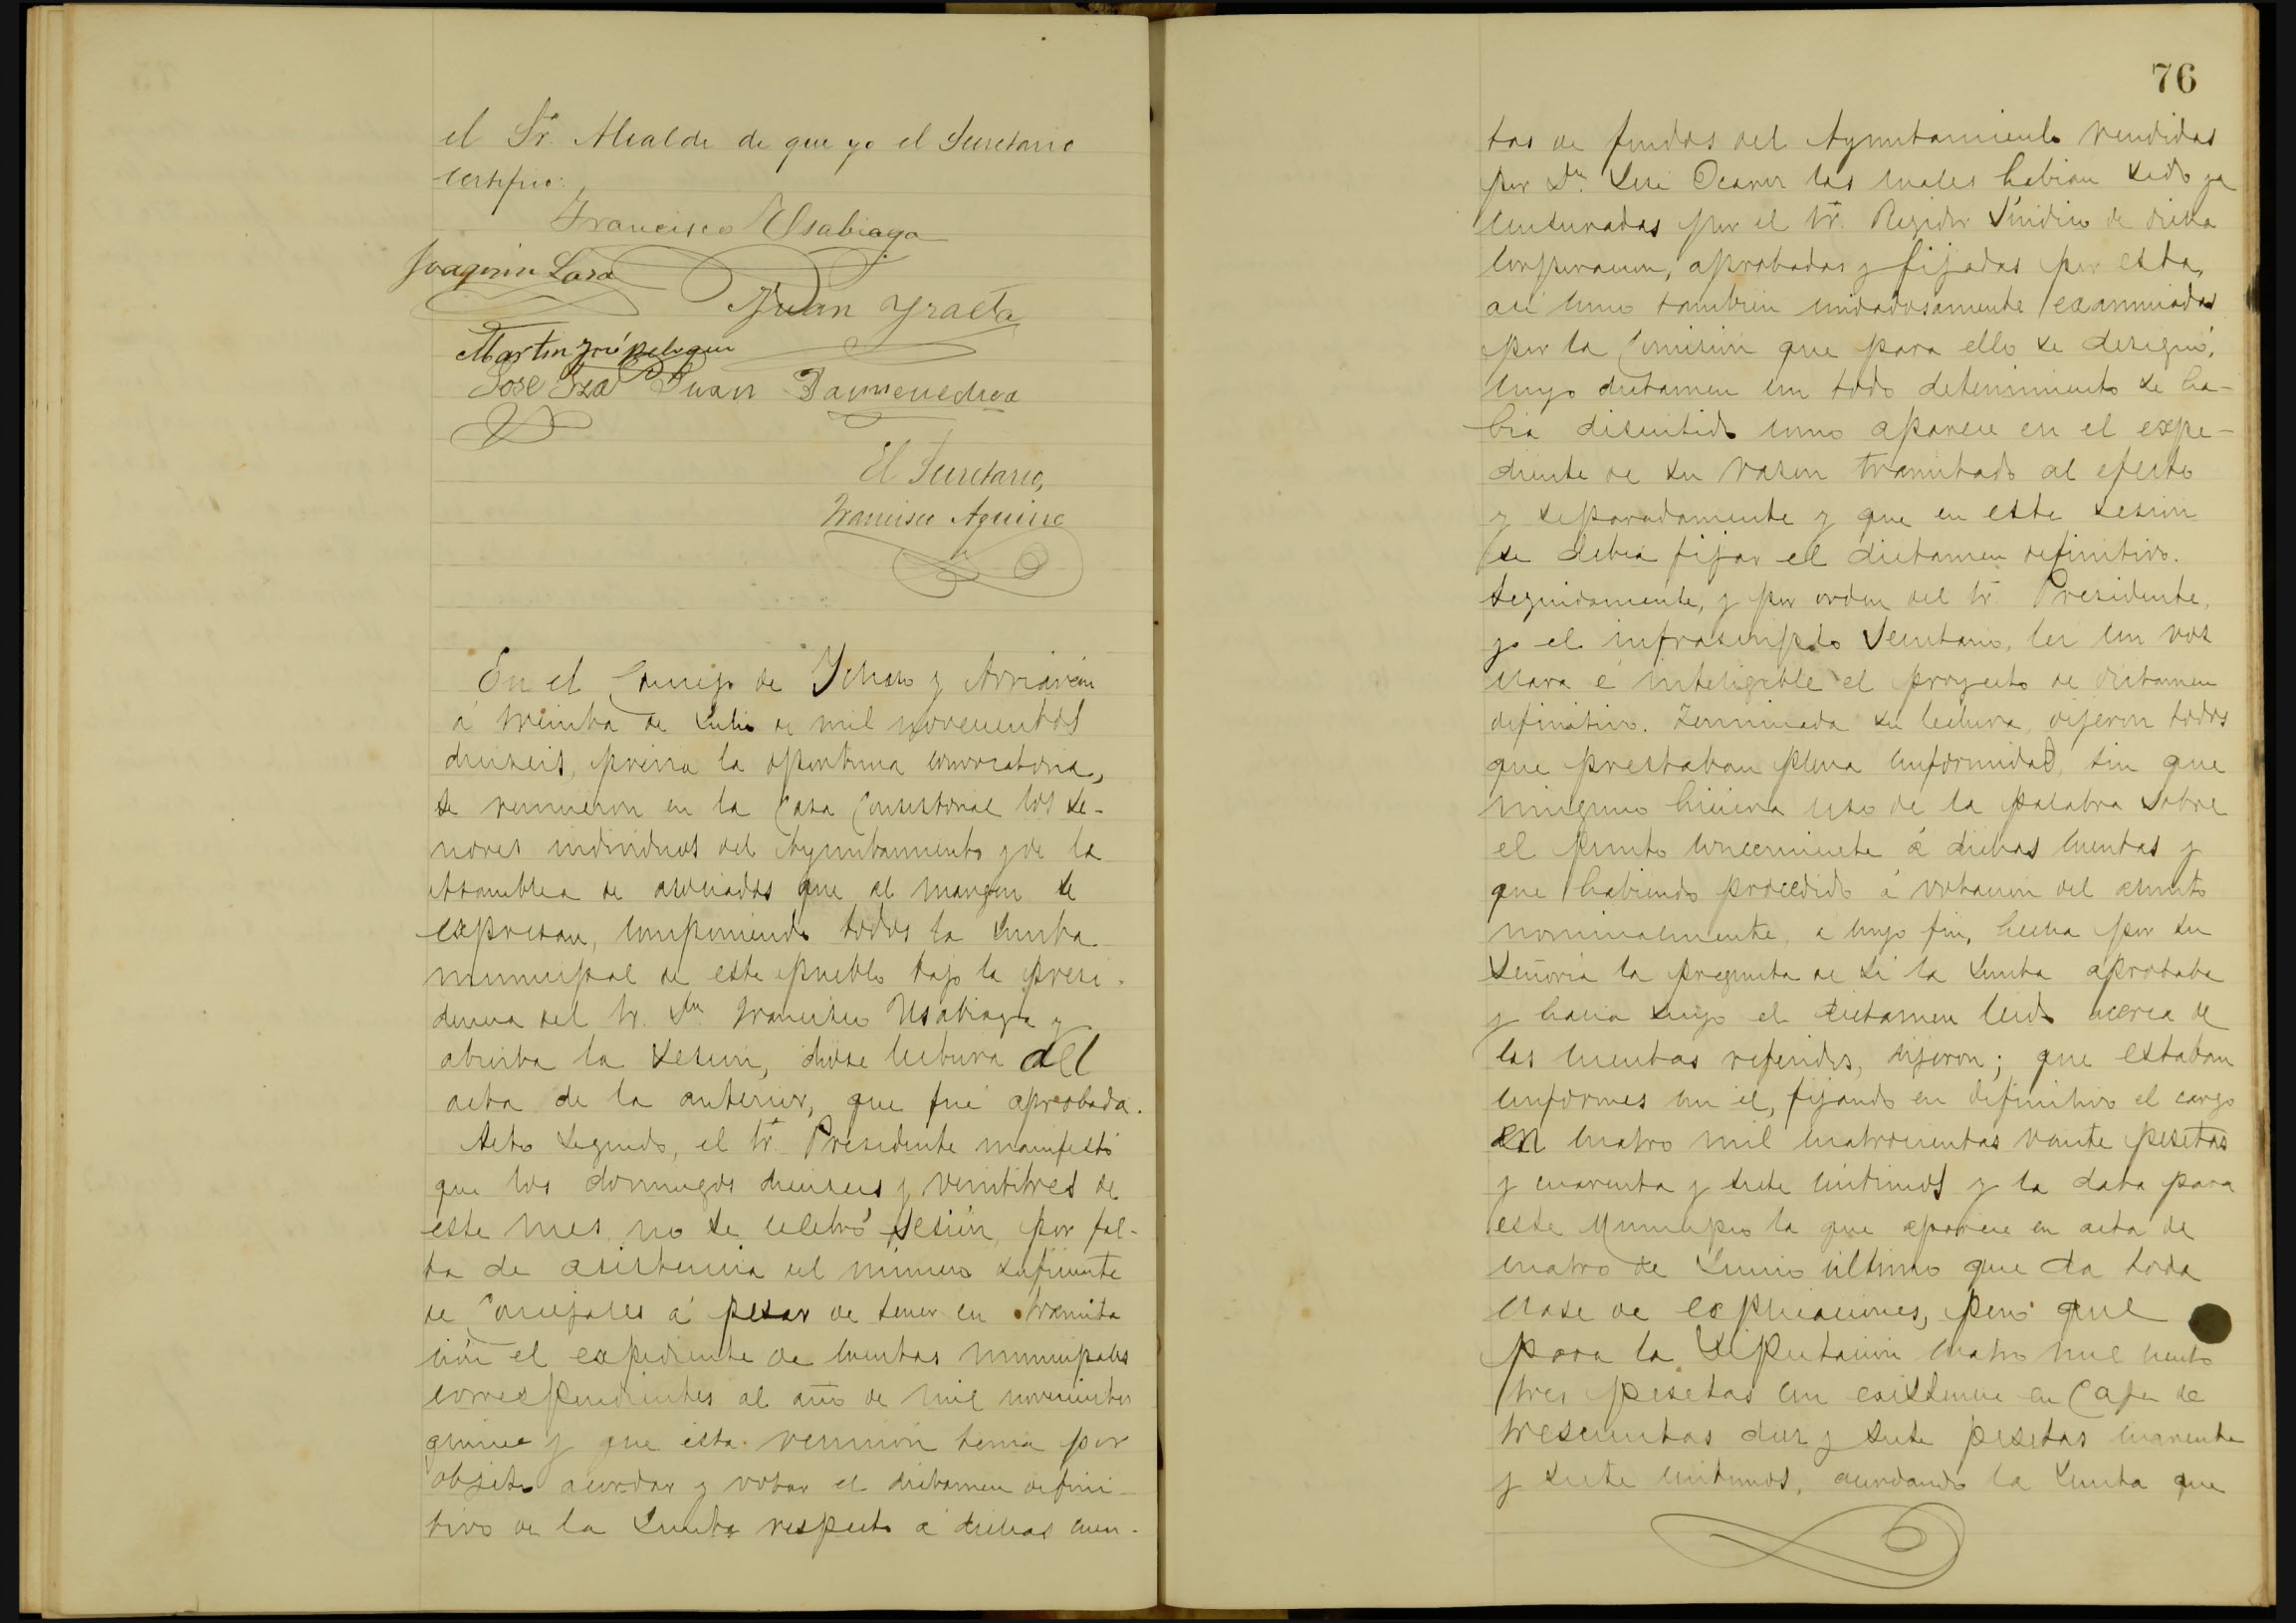 el Sr. Alcalde de que yo el Secretario
certifico:
Francisco Usabiaga
Joaquin Lasa
Juan Yraeta
Martin
José Yza Juan
El Secretario,
Francisco Aguirre
En el Concejo de Ichaso y Arriarán
á treinta de Julio de mil novecientos
dieciseis, previa la oportuna convocatoria,
se reunieron en la Casa Consistorial los se-
ñores individuos del Ayuntamiento y de la
Asamblea de asociados que al margen se
expresan, componiendo todos la Junta
municipal de este pueblo bajo la presi-
dencia del Sr. Dn. Francisco Usabiaga y
abierta la sesion, diose lectura del
acta de la anterior, que fué aprobada.
Acto seguido, el Sr. Presidente manifestó
que los domingos dieciseis y veintitres de
este mes no se celebró sesión por fal-
ta de asistencia del número suficiente
de Concejales á pesar de tener en tramita
ción el expediente de cuentas municipales
correspondientes al año de mil novecientos
quince y que esta reunión tenia por
objeto acordar y votar el dictamen defini-
tivo de la Junta respecto á dichas cuen-
76
tas de fondos del Ayuntamiento rendidas
por Dn. José Ocariz las cuales habian sido ya
censuradas por el Sr. Regidor Síndico de dicha
Corporacion, aprobadas y fijadas por esta,
asi como tambien cuidadosamente examinadas
por la Comision que para ello se designó,
cuyo dictamen con todo detenimiento se ha-
bia discutido como aparece en el expe-
diente de su razon tramitado al efecto
y separadamente y que en esta sesion
se debia fijar el dictamen definitivo.
Seguidamente, y por orden del Sr. Presidente,
yo el infrascripto Secretario, lei con voz
clara é inteligible el proyecto de dictamen
definitivo. Terminada su lectura, dijeron todos
que prestaban plena conformidad, sin que
ninguno hiciera uso de la palabra sobre
el punto concerniente á dichas cuentas y
que habiendo procedido á votacion del asunto
nominalmente, a cuyo fin, hecha por su
Señoria la pregunta de si la Junta aprobaba
y hacia suyo el dictamen leido acerca de
las cuentas referidas, dijeron; que estaban
conformes con él, fijando en definitivo el cargo
en cuatro mil cuatrocientas veinte pesetas
y cuarenta y siete céntimos y la data para
este Municipio la que aparece en acta de
cuatro de Junio último que da toda
clase de explicaciones, pero que
para la Diputación cuatro mil ciento
tres pesetas con existencia en Caja de
trescientas diez y siete pesetas cuarenta
y siete centimos, acordando la Junta que